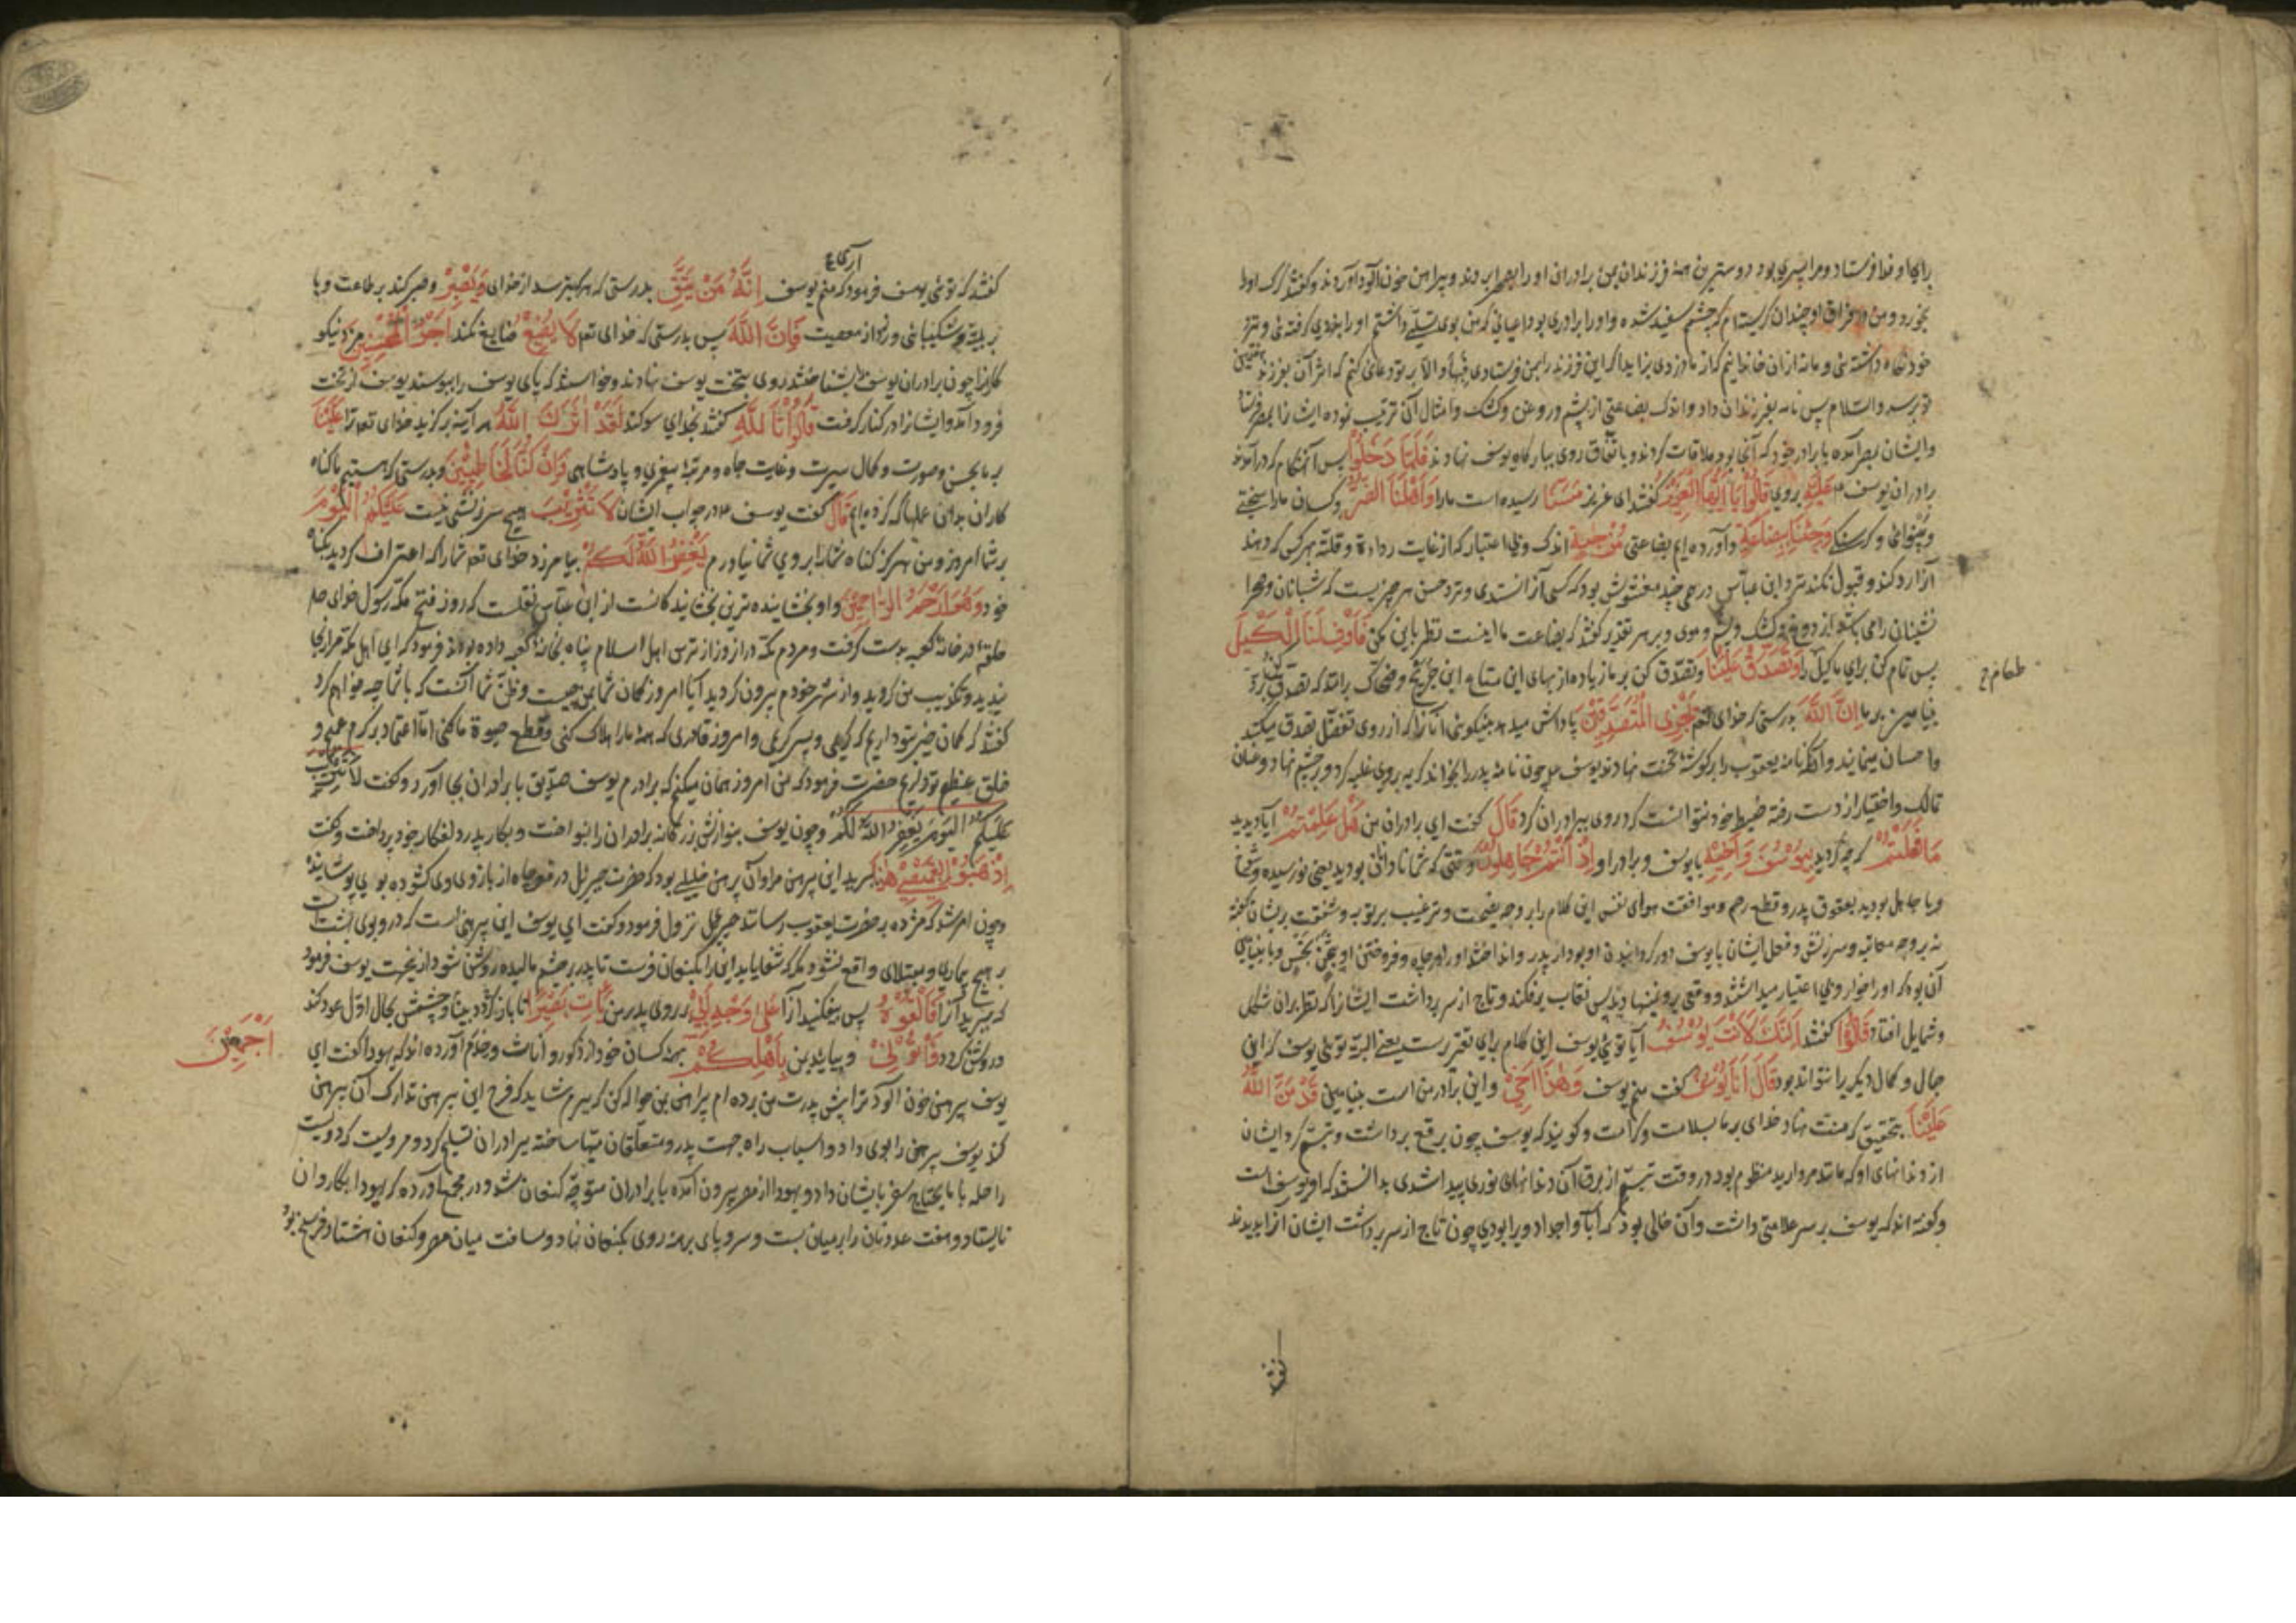 برای او فدا فرستاد و مرا پسری بود دوسترین همه فرزندان بمن برادران او را بصحرا بردند و پیراهن خون آلود آوردند و گفتند گرگ او را
بخورد و من در فراق او چندان گریسته‌ام که چشمم سفید شده و او را برادری بود اعیانی که من بوی تسلی داشتم او را بدزدی گرفته و نزد
خود نگاه داشته و ما نه از آن خاندانیم که از ما دزدی بزاید اگر این فرزند را بمن فرستادی فبها و الا بر تو دعائی کنم که اثر آن بفرزند هفتمین
تو برسد والسلام پس نامه بفرزندان داد و اندک بضاعتی از پشم و روغن و کشک و امثال آن ترتیب نموده ایشانرا بمصر فرستاد
و ایشان بمصر آمده با برادر خود که آنجا بود ملاقات کردند و باتفاق روی ببارگاه یوسف نهادند فَلَمَّا دَخَلُوا پس آن هنگام که درآمدند
برادران یوسف عَلَيْهِ بروی قَالُوا يَا أَيُّهَا الْعَزِيزُ گفتند ای عزیز مَسَّنَا رسیده است ما را وَأَهْلَنَا الضُّرُّ و کسان ما را سختی
و بینوائی و گرسنگی وَجِئْنَا بِبِضَاعَةٍ و آورده‌ایم بضاعتی مُزْجَاةٍ اندک و بی اعتبار که از غایت رداءة و قلت بهر کس که دهند
آنرا رد کند و قبول نکند نزد ابن عباس درمی چند مغشوش بود که کسی آنرا نستدی و نزد حسن هر چیزیست که شبانان و صحرا
نشینان را می‌باشد از دوغ و کشک و پشم و موی و بر هر تقدیر گفتند که بضاعت ما اینست نظر باین مکن فَأَوْفِ لَنَا الْكَيْلَ
پس تمام کن برای ما کیل را وَتَصَدَّقْ عَلَيْنَا و تصدق کن بر ما زیاده از بهای این متاع ابن جریج و ضحاک برانند که تصدق کن برد
طعام ح
بنیامین بر ما إِنَّ اللَّهَ بدرستی که خدای تعم يَجْزِي الْمُتَصَدِّقِينَ پاداش میدهد بنیکوئی آنانرا که از روی تفضل تصدق میکنند
و احسان مینمایند و آنگه نامه یعقوب را بر گوشه تخت نهادند یوسف چون نامه پدر را بخواند گریه بروی غلبه کرد و بر چشم نهاد و عنان
تمالک و اختیار از دست رفته ضبط خود نتوانست کرد روی ببرادران کرد قَالَ گفت ای برادران من هَلْ عَلِمْتُمْ آیا دیدید
مَا فَعَلْتُمْ که چه کردید بِيُوسُفَ وَأَخِيهِ با یوسف و برادر او إِذْ أَنْتُمْ جَاهِلُونَ وقتی که شما نادان بودید یعنی نورسیده و شما
و یا جاهل بودید بعقوق پدر و قطع رحم و موافقت هوای نفس این کلام را بر وجه نصیحت و ترغیب بر توبه و شفقت بریشان گفته
نه بر وجه معاتبه و سرزنش و فعل ایشان با یوسف دور گردانیدن او بود از پدر و انداختن او را در چاه و فروختن او بثمن بخس و با بنیامین
آن بود که او را خوار و بی اعتبار میداشتند و وقتی پروی نهادند پس نقاب برفکند و تاج از سر برداشت ایشانرا که نظر بران شکل
و شمایل افتاد قَالُوا گفتند أَإِنَّكَ لَأَنْتَ يُوسُفُ آیا توئی یوسف این کلام برای تقریرست یعنی البته توئی یوسف که این
جمال و کمال دیگریرا نتواند بود قَالَ أَنَا يُوسُفُ گفت منم یوسف وَهَذَا أَخِي و این برادر من است بنیامین قَدْ مَنَّ اللَّهُ
عَلَيْنَا بتحقیق که منت نهاد خدای بر ما بسلامت و کرامت و گویند که یوسف چون برقع برداشت و تبسم کرد ایشان
از دندانهای او که مانند مروارید منظوم بود در وقت تبسم از برق آن دندانهای نوری پیدا شدی بدانستند که او یوسف است
و گفته‌اند که یوسف بر سر علامتی داشت و آن خالی بود که آبا و اجداد ویرا بودی چون تاج از سر برداشت ایشان آنرا بدیدند
گفتند که توئی یوسف فرمود که منم یوسف إِنَّهُ مَنْ يَتَّقِ بدرستی که هر که بترسد از خدای وَيَصْبِرْ و صبر کند بر طاعت و یا
بر بلیه و شکیبائی ورزد از معصیت فَإِنَّ اللَّهَ پس بدرستی که خدای تعم لَا يُضِيعُ ضایع نکند أَجْرَ الْمُحْسِنِينَ مزد نیکو
کارانرا چون برادران یوسف را بشناختند روی بتخت یوسف نهادند و خواستند که پای یوسف را ببوسند یوسف از تخت
فرود آمد و ایشانرا در کنار گرفت قَالُوا تَاللَّهِ گفتند بخدای سوگند لَقَدْ آثَرَكَ اللَّهُ هر آینه برگزید خدای تعم ترا عَلَيْنَا
بر ما بحسن صورت و کمال سیرت و غایت جاه و مرتبه پیغمبری و پادشاهی وَإِنْ كُنَّا لَخَاطِئِينَ و بدرستی که هستیم ما گناه
کاران بدان عملها که کرده‌ایم قَالَ گفت یوسف ع در جواب ایشان لَا تَثْرِيبَ هیچ سرزنشی نیست عَلَيْكُمُ الْيَوْمَ
بر شما امروز و من هرگز گناه شما را بروی شما نیاورم يَغْفِرُ اللَّهُ لَكُمْ بیامرزد خدای تعم شما را که اعتراف کردید بگناه
خود وَهُوَ أَرْحَمُ الرَّاحِمِينَ و او بخشاینده‌ترین بخشایندگانست از ابن عباس نقلست که روز فتح مکه رسول خدای صلم
حلقه در خانه کعبه بدست گرفت و مردم مکه در آن روز از ترس اهل اسلام پناه بخانه کعبه داده بودند فرمود که ای اهل مکه مرا رنجا
نیدید و تکذیب من کردید و از شهر خودم بیرون کردید آیا امروز گمان شما بمن چیست و ظن شما آنست که با شما چه خواهم کرد
گفتند که گمان خیر بتو داریم که کریمی و پسر کریمی و امروز قادری که همه ما را هلاک کنی و قطع حیوة ما کنی اما اعتماد بر کرم عمیم و
خلق عظیم تو داریم حضرت فرمود که من امروز همان میکنم که برادرم یوسف صدیق با برادران بجا آورد و گفت لَا تَثْرِيبَ
عَلَيْكُمُ الْيَوْمَ يَغْفِرُ اللَّهُ لَكُمْ و چون یوسف بنوازش بزرگانه برادران را بنواخت و بکار پدر دلفکار خود پرداخت و گفت
اذْهَبُوا بِقَمِيصِي هَذَا ببرید این پیرهن مرا و آن پیرهن خلیلی بود که حضرت جبرئیل در قعر چاه از بازوی وی کشوده بوی پوشانیده
و چون امر شد که مژده بحضرت یعقوب رساند جبرئیل نزول فرمود و گفت ای یوسف این پیرهنی است که درو بوی بهشت است
بر هیچ بیماری و مبتلای واقع نشود مگر که شفا یابد این را بکنعان فرست تا پدر بر چشم مالیده روشن شود ازینجهت یوسف فرمود
که ببرید آنرا فَأَلْقُوهُ پس بیفکنید آنرا عَلَى وَجْهِ أَبِي بر روی پدر من يَأْتِ بَصِيرًا تا باز گردد بینا و چشمش بحال اول عود کند
و روشن گردد وَأْتُونِي و بیایید بمن بِأَهْلِكُمْ بهمه کسان خود از ذکور و اناث و خدم آورده‌اند که یهودا گفت ای
أَجْمَعِينَ
یوسف پیرهن خون آلود ترا پیش پدرت من برده‌ام پیراهن بمن حواله کن که ببرم شاید که فرح این پیرهن تدارک آن پیرهن
کند یوسف پیرهن را بوی داد و اسباب راه جهت پدر و متعلقان مهیا ساخته ببرادران تسلیم کرد و مرویست که دویست
راحله با ما یحتاج سفر بایشان داد و یهودا از مصر بیرون آمده با برادران متوجه کنعان شد و در مجمع آورده که یهودا بکاروان
نایستاد و هفت عدد نان را بر میان بست و سر و پای برهنه روی بکنعان نهاد و مسافت میان مصر و کنعان هشتاد فرسخ بود